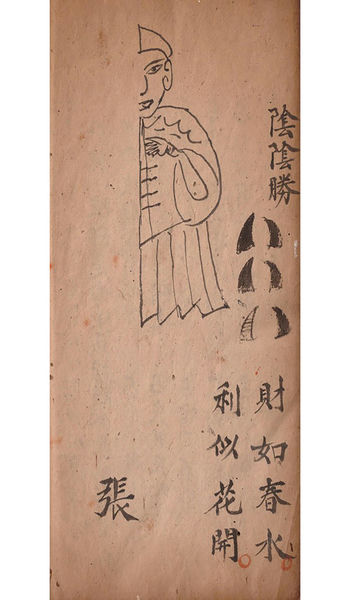 陰陰勝
財如春水
利似花開
張